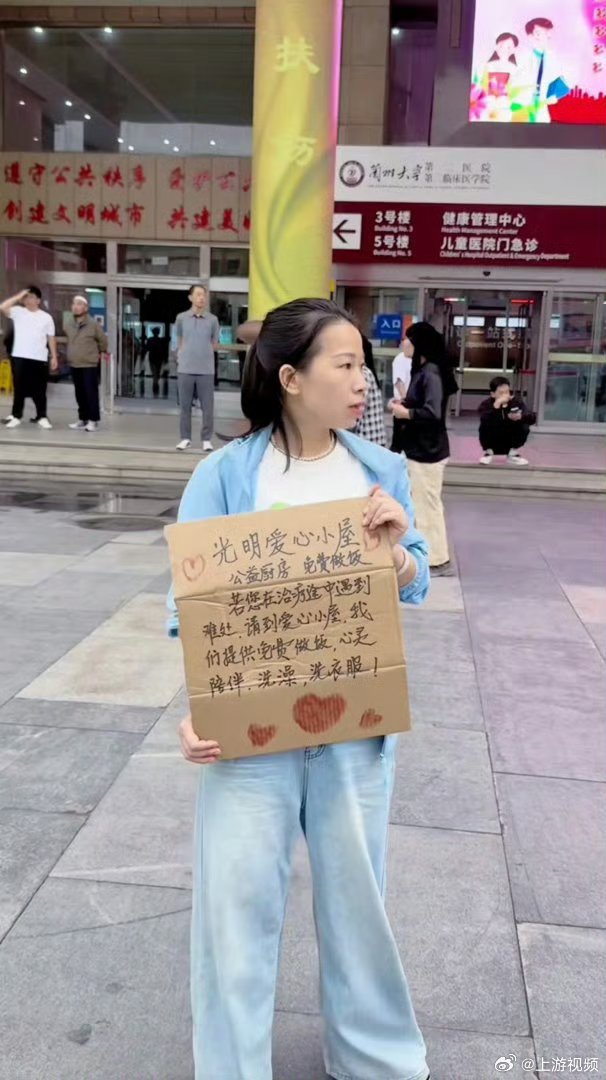 扶
遵守公共秩序
创建文明城市 共建美
蘭州大学第二医院
第二临床医学院
3号楼
Building No.3
5号楼
Building No.5
健康管理中心
Health Management Center
儿童医院门急诊
Children's Hospital Outpatient & Emergency Department
入口
光明爱心小屋
公益厨房 免费做饭
若您在治疗途中遇到
难处.请到爱心小屋.我
们提供免费做饭,心灵
陪伴.洗澡,洗衣服!
@上游视频